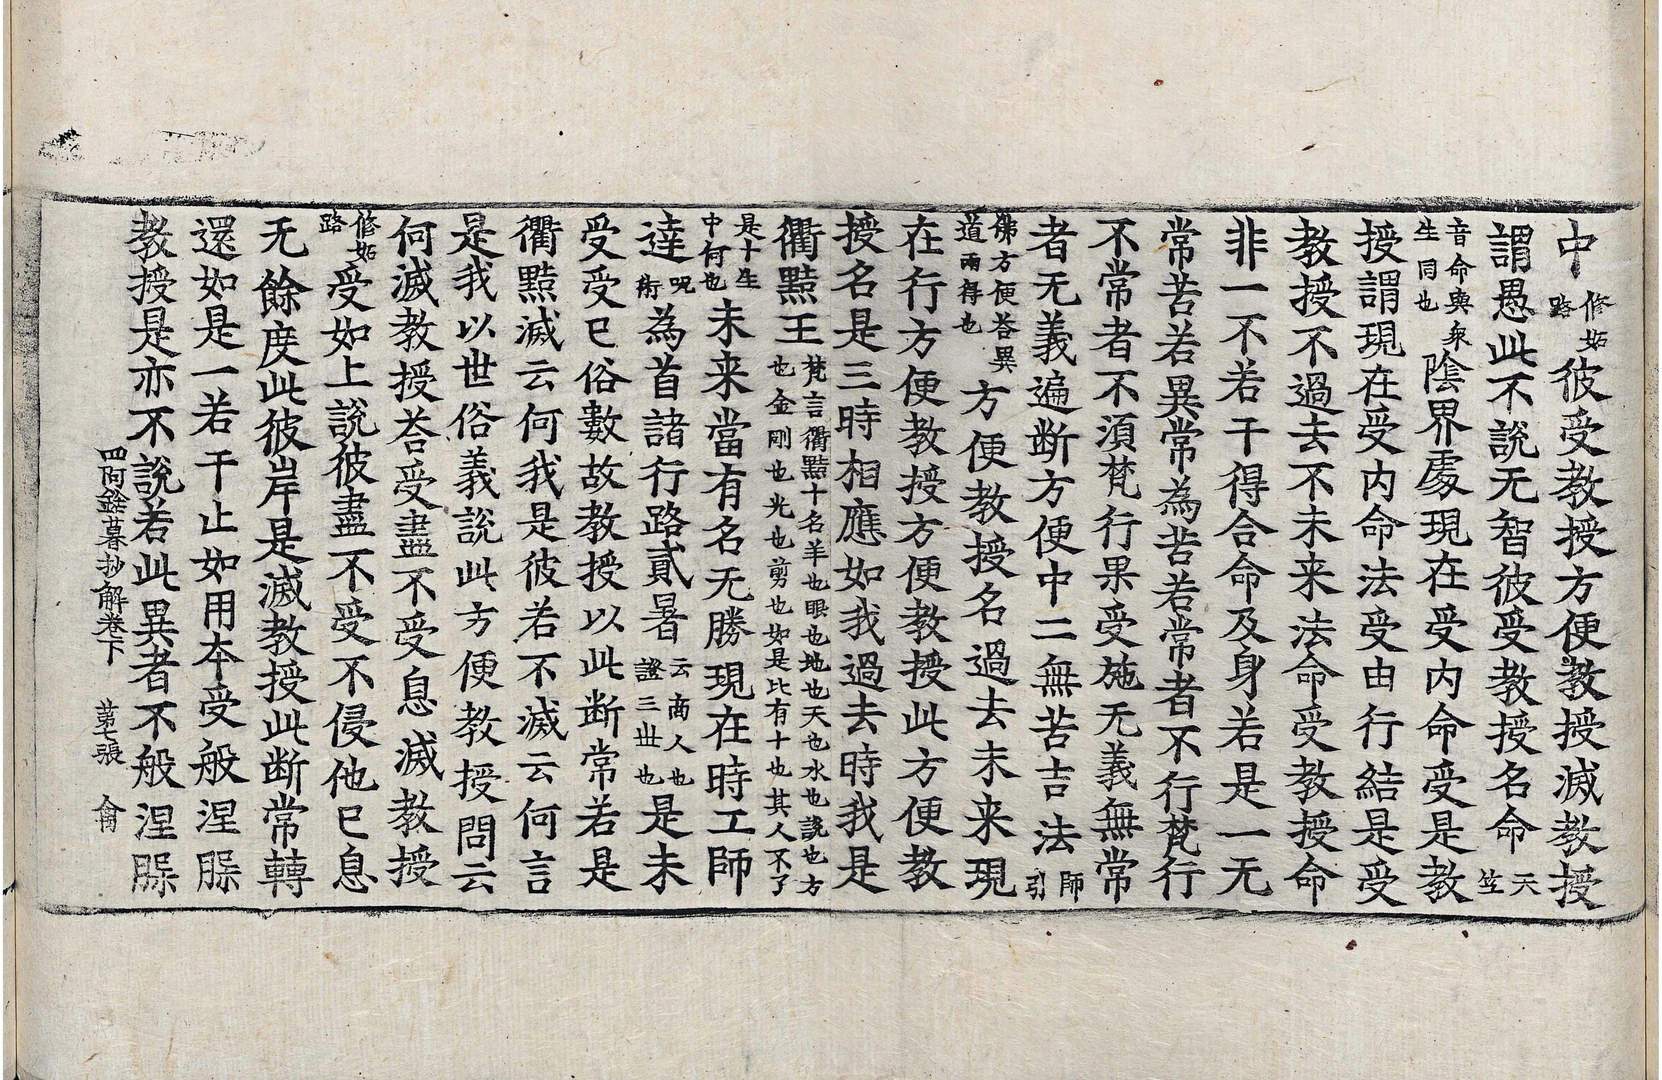 中修妬路彼受教授方便教授滅教授
謂愚此不說无智彼受教授名命天竺
音命與衆生同也陰界處現在受內命受是教
授謂現在受內命法受由行結是受
教授不過去不未来法命受教授命
非一不若干得合命及身若是一无
常苦若異常為苦若常者不行梵行
不常者不須梵行果受施无義無常
者无義遍断方便中二無苦吉法師引
佛方便荅異道兩得也方便教授名過去未来現
在行方便教授方便教授此方便教
授名是三時相應如我過去時我是
衢㸃王梵言衢㸃十名羊也眼也地也天也水也說也方也金剛也光也箭也如是比有十也其人不了
是十生中何也未来當有名无勝現在時工師
達呪術為首諸行路貳暑云商人也證三世也是未
受受已俗數故教授以此断常若是
衢㸃滅云何我是彼若不滅云何言
是我以世俗義說此方便教授問云
何滅教授荅受盡不受息滅教授
修妬路受如上說彼盡不受不侵他已息
无餘度此彼岸是滅教授此断常轉
還如是一若干止如用本受般涅槃
教授是亦不說若此異者不般涅槃
四阿鋡暮抄解卷下 苐七張